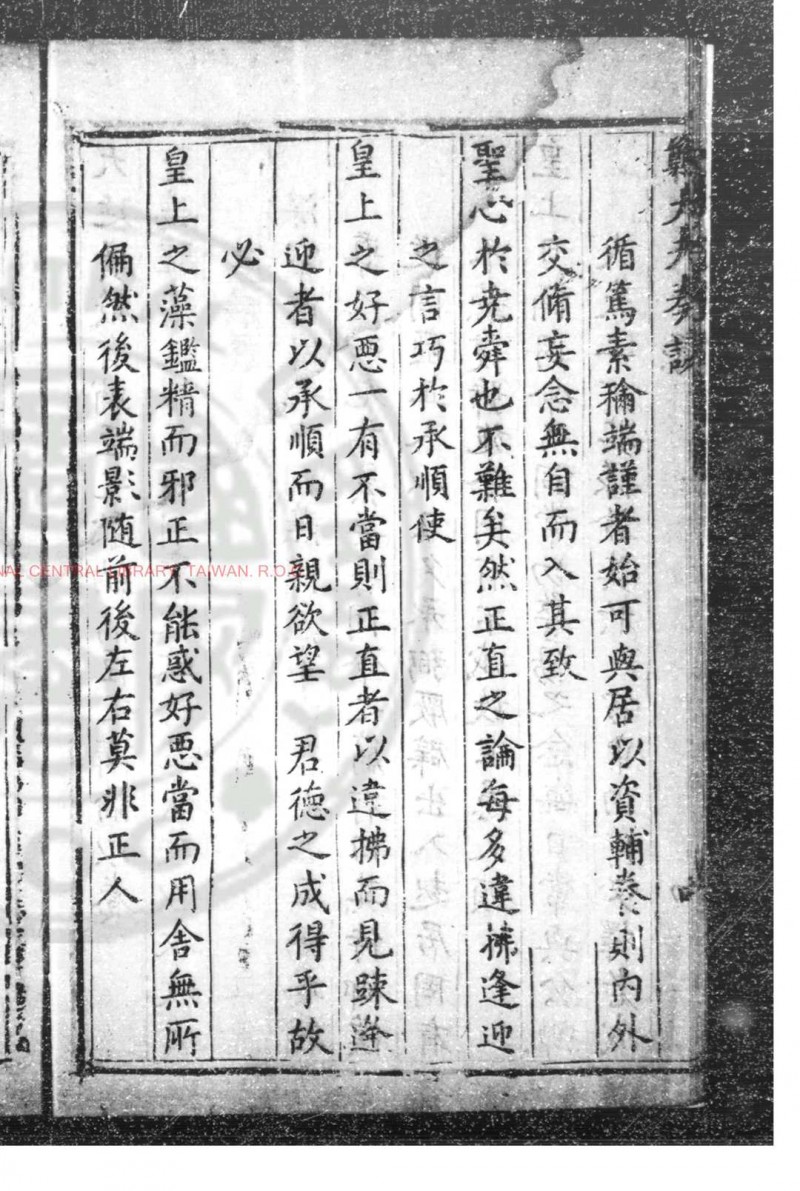 循篤素稱端謹者始可與居以資輔養則内外
交脩妄念無自而入其致
聖心於堯舜也不難矣然正直之論每多違拂逢迎
之言巧於承順使
皇上之好惡一有不當則正直者以違拂而見踈逢
迎者以承順而日親欲望 君德之成得乎故
必
皇上之藻鑑精而邪正不能惑好惡當而用舍無所
偏然後表端影随前後左右莫非正人
NAL CENTRAL LIBRARY, TAIWAN. R.O.C